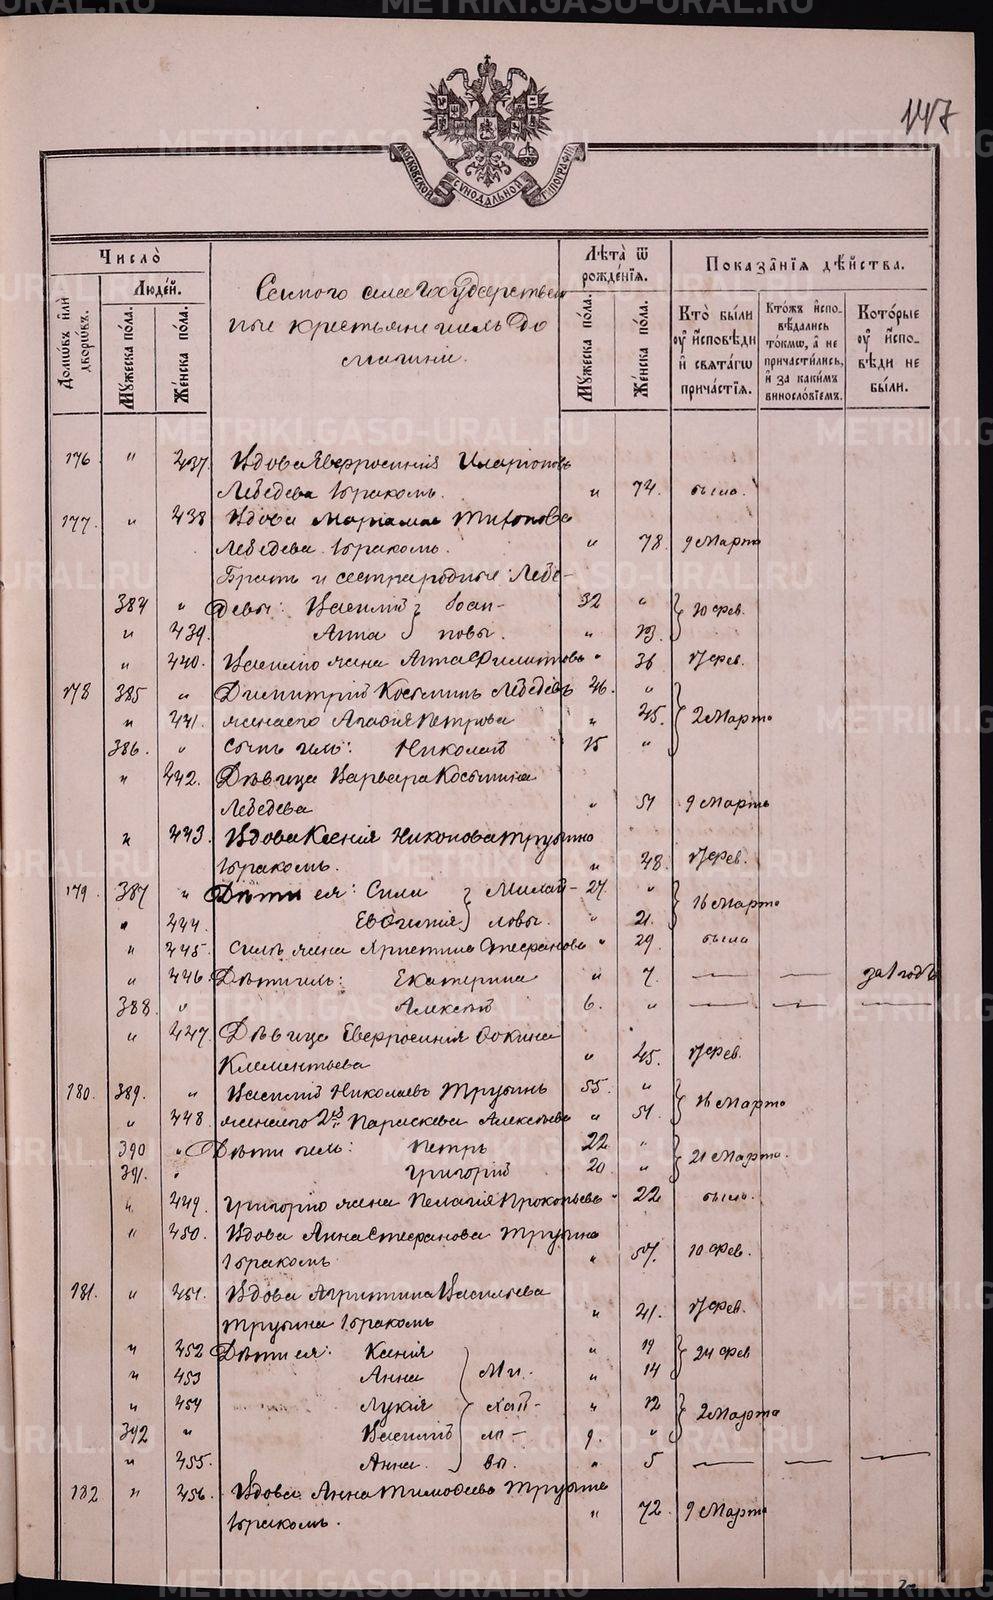 METRIKI.GASO-URAL.RU
147
МОСКОВСКОЙ СѴНОДАЛЬНОЙ ТИПОГРАФІИ
Число̀
Домѡвъ и҆лѝ дворѡвъ.
Люде́й.
Мꙋ́жеска по́ла.
Же́нска по́ла.
Самого села Государствен
ные крестьяне и ихъ до
машніе.
Лѣта̀ ѿ рожде́нїѧ.
Мꙋ́жеска по́ла.
Же́нска по́ла.
Показа̑нїѧ дѣ́йства.
Кто̀ бы́ли ᲂу҆ и҆сповѣ́ди и҆ свѧта́гѡ прича́стїѧ.
Кто́жъ и҆спо- вѣ́дались то́кмѡ, а҆ не причасти́лись, и҆ за каки́мъ винослові́емъ.
Кото́рые ᲂу҆ и҆спо- вѣ́ди не бы́ли.
176 " 437. Вдова Евфросинія Иларіонов
Лебедева 1 бракомъ. " 74. была.
177. " 438 Вдова Тихонова
Лебедева 1 бракомъ. " 78. 9 Марта
Братъ и сестра родные: Лебе-
384 " девы: Василій } Іоан- 32 " } 10 фев.
" 439. Анна } новы. " 23.
" 440. Василія жена Анна Филиппова " 36 17 фев.
178 385 " Димитрій Косминъ Лебедевъ 46. " } 2 Марта
" 441. жена его Агафія Петрова " 45.
386. " сынъ ихъ: Николай 15 "
" 442. Дѣвица Варвара Космина
Лебедева " 51 9 Марта
" 443. Вдова Ксенія Никонова Трубина
1 бракомъ. " 48. 17 фев.
179 387 " Дѣти ея: Сила } Михай- 27. " } 16 Марта
" 444. Евѳимія } ловы. " 21.
" 445. Силы жена Христина Стефанова " 29. была
" 446. Дѣти ихъ: Екатерина " 7. — — за 1 годъ
388. " Алексѣй 6. " — — —
" 447. Дѣвица Евфросинія Фокина
Клементьева " 45. 17 фев.
180. 389. " Василій Николаевъ Трубинъ 55. " } 16 Марта
" 448. жена его 2я Параскева Алексѣева " 51.
390 " Дѣти ихъ: Петръ 22 " } 21 Марта.
391. " Григорій 20. "
" 449. Григорія жена Пелагія Прокопьева " 22 была.
" 450. Вдова Анна Стефанова Трубина
1 бракомъ " 57. 10 фев.
181. " 451. Вдова Агриппина Васильева
Трубина 1 бракомъ " 41. 17 фев.
" 452 Дѣти ея: Ксенія } " 19 } 24 фев
" 453 Анна } Ми- " 14
" 454 Лукія } хай- " 12 } 2 Марта
392 " Василій } ло- 9. "
" 455. Анна. } вы. " 5 — — —
182 " 456. Вдова Анна Тимофеева Трубина
1 бракомъ. " 72. 9 Марта